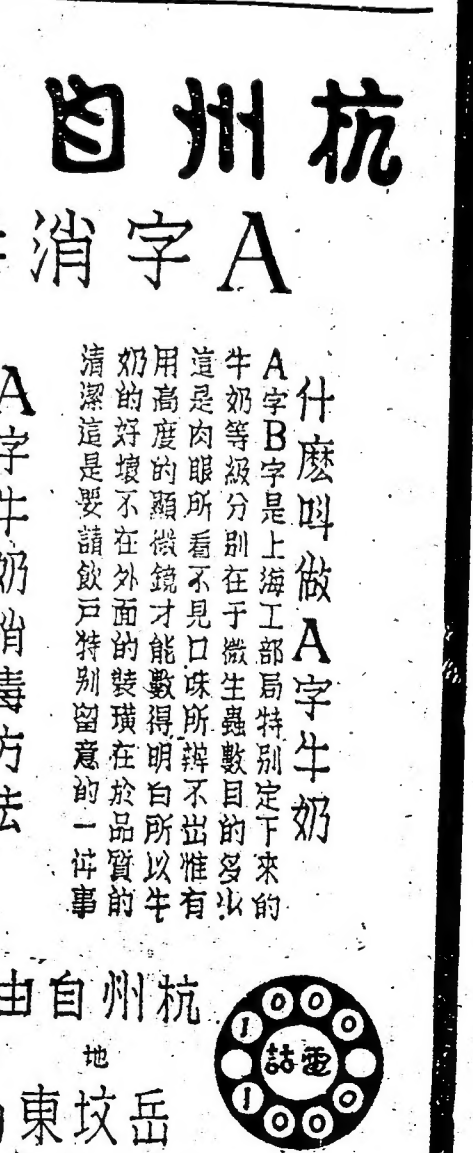 杭州自
A字消
什麼叫做A字牛奶
A字B字是上海工部局特別定下來的
牛奶等級分別在于微生蟲數目的多少
這是肉眼所看不見口味所辨不出惟有
用高度的顯微鏡才能數得明白所以牛
奶的好壞不在外面的裝璜在於品質的
清潔這是要請飲戶特別留意的一件事
A字牛奶消毒方法
杭州自由
電話
1000
1000
地
岳坟東